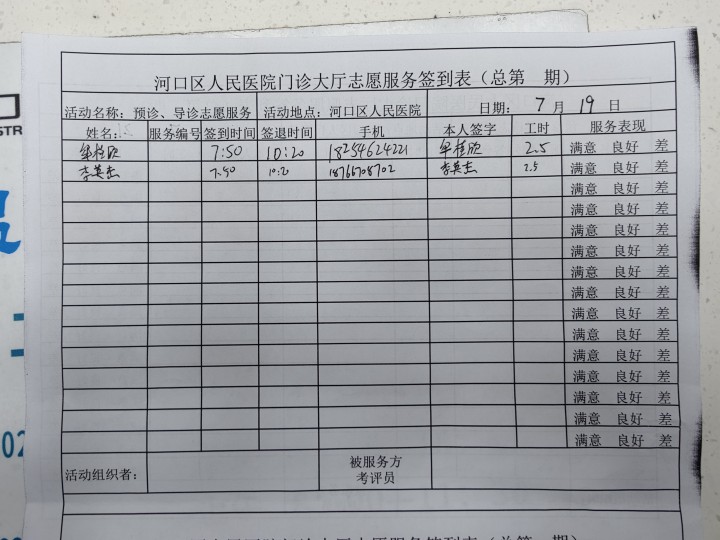 河口区人民医院门诊大厅志愿服务签到表（总第 期）
活动名称：预诊、导诊志愿服务 活动地点：河口区人民医院 日期： 7 月 19 日
姓名： 服务编号 签到时间 签退时间 手机 本人签字 工时 服务表现
单桂欣 7:50 10:20 18254624221 单桂欣 2.5 满意 良好 差
李英杰 7:50 10:20 18766708702 李英杰 2.5 满意 良好 差
满意 良好 差
满意 良好 差
满意 良好 差
满意 良好 差
满意 良好 差
满意 良好 差
满意 良好 差
满意 良好 差
满意 良好 差
满意 良好 差
满意 良好 差
满意 良好 差
满意 良好 差
活动组织者： 被服务方
考评员
STR
02